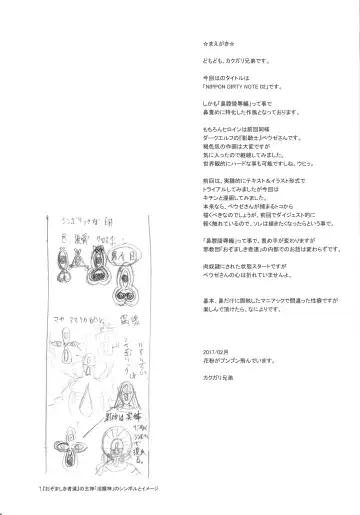 ☆まえがき☆
どもども、カクガリ兄弟です。
今回はのタイトルは
「NIPPON DIRTY NOTE 02」です。
しかも「鼻腔陵辱編」って事で
鼻責めに特化した作風となっております。
ももろんヒロインは前回同様
ダークエルフの『影騎士』ベウゼさんです。
褐色肌の作画は大変ですが
気に入ったので継続してみました。
世界観的にハードな事も可能ですし、ウヒゥ。
前回は、実験的にテキスト&イラスト形式で
トライアルしてみましたが今回は
キチンと漫画してみました。
本来なら、ベウゼさんが捕まるトコから
描くべきなのでしょうが、前回でダイジェスト的に
軽く触れているので、ソレは描きたくなったらという事で。
「鼻腔陵辱編」って事で、責め手が変わりますが
邪教団『おぞましき者達』の内部でのお話は変わらずです。
肉奴隷にされた状態スタートですが
ベウゼさんの心は折れていませんよ。
基本、鼻だけに固執したマニアックで間違った性癖ですが
楽しんで頂けたら、なによりです。
2017/02月
花粉がブンブン飛んでいます。
カクガリ兄弟
↑『おぞましき者達』の主神「淫魔神」のシンボルとイメージ